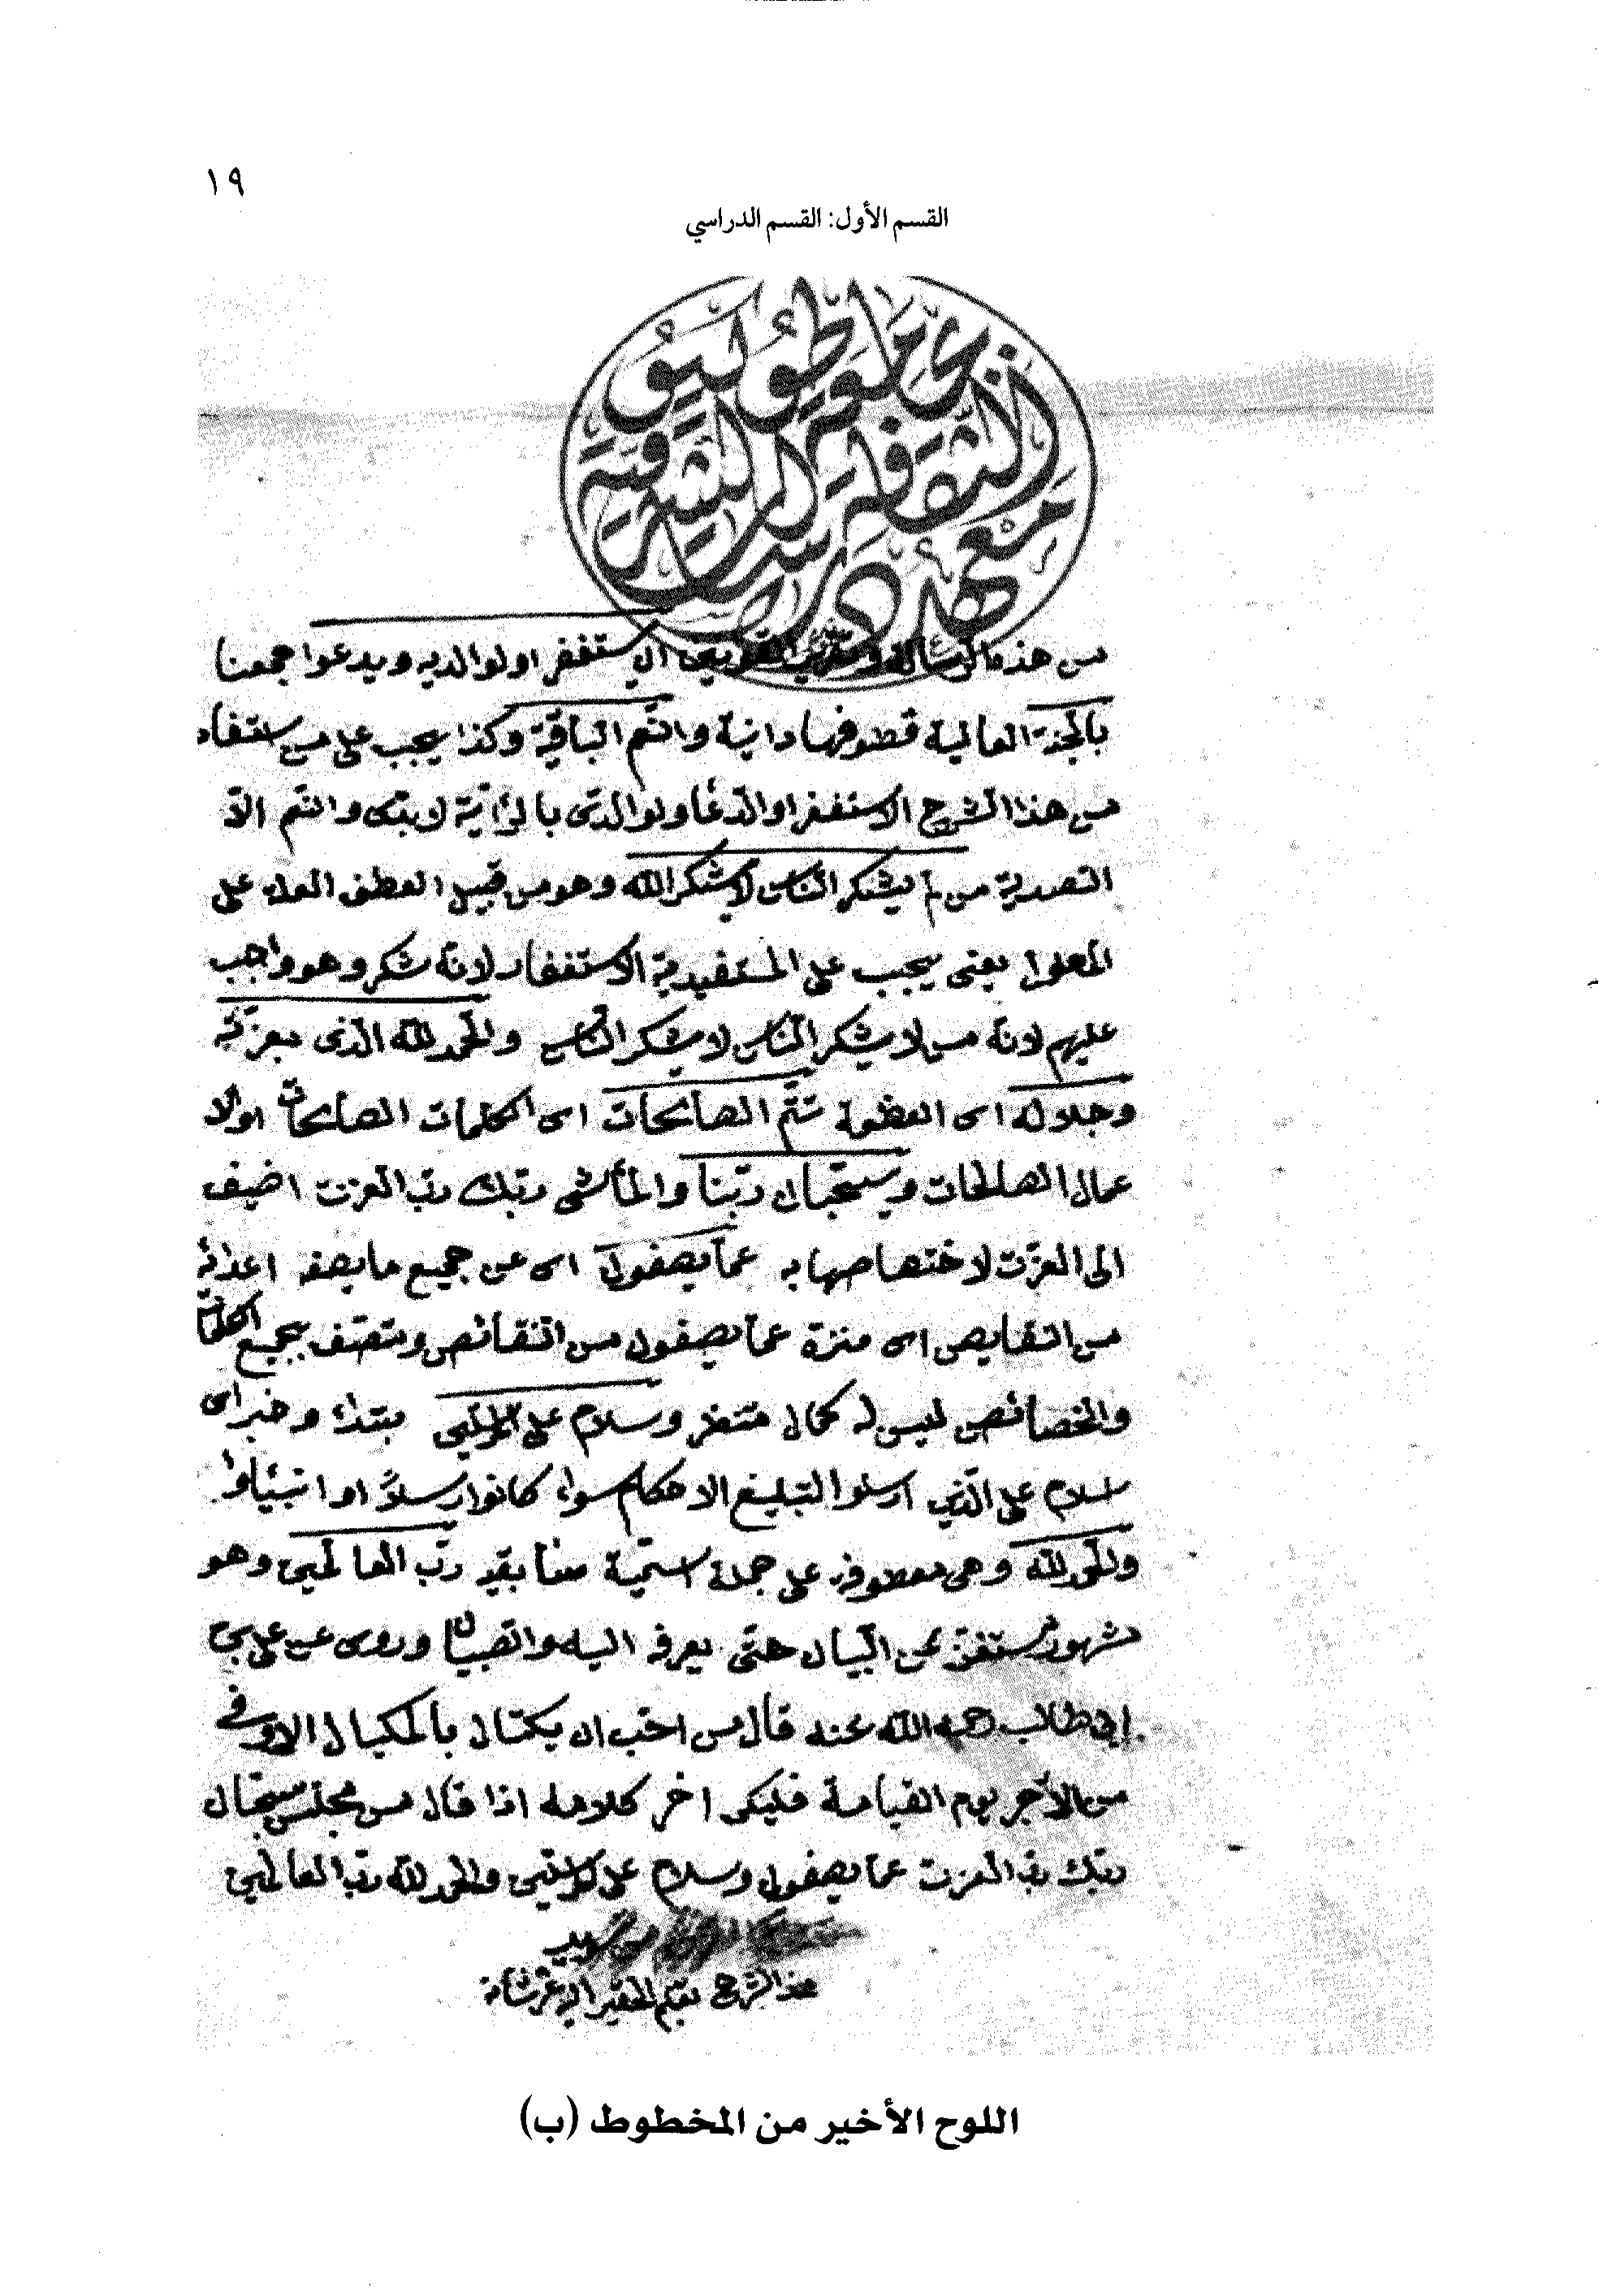 ١٩
القسم الأول: القسم الدراسي
معهد الثقافة والدراسات الشرقية
جامعة طوكيو
من هذه الرسالة ان يستغفر او لوالديه ويدعوا جمعنا
بالجنة العالية قطوفها دانية والنعم الباقية وكذا يجب على من استفاد
من هذا الشرح الاستغفر او الدعا ولوالدى
التصدية من لم يشكر الناس لا يشكر الله وهو من قبيل العطف العلة على
المعلول يعنى يجب على المستفيدين الاستغفار لانه شكر وهو واجب
عليهم لانه من لا يشكر الناس لا يشكر الناس والحمد لله الذى بعزته
وجلاله اى العظمة تتم الصالحات اى الكلمات الصالحات اوالا
عمال الصالحات وسبحان ربنا رب العزت اضيف
الى العزت لاختصاصها به عما يصفون اى عن جميع ما يصفه اعدائه
من النقايص اى منزة عما يصفون من النقائص ومتصف بجميع
والخصائص ليس له كمال منتظر وسلام على المرسلين مبتداء وخبر اى
سلام على الذين ارسلوا التبليغ الاحكام سواء كانوا رسلاً او انبئياوا
والحمد لله وهى معطوفة على جملة اسمية رب العالمين وهو
مشهور مستغن عن البيان حتى يعرف اليه والصبيان وروى عن على بن
ابى طالب رضى الله عنه قال من احب ان يكتال بالمكيال الاوفى
من الاجر يوم القيامة فليكن اخر كلامه اذا قال من مجلس سبحان
ربك رب العزت عما يصفون وسلام على المرسلين والحمد لله رب العالمين
هذا الشرح
اللوح الأخير من المخطوط (ب)